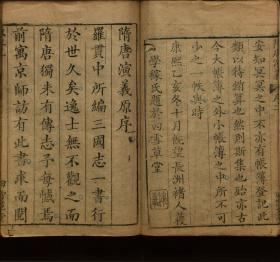 安知冥冥之中不亦有帳簿登記此
類以待銷算也然則斯集也殆亦古
今大帳簿之外小帳簿之中所不可
少之一帙與時
康熙乙亥冬十月既望長洲褚人穫
學稼氏題於四雪草堂
隋唐演義原序
羅貫中所編三國志一書行
於世久矣逸士無不觀之而
隋唐獨未有傳志予每憾焉
前寓京師訪有此書求而閱